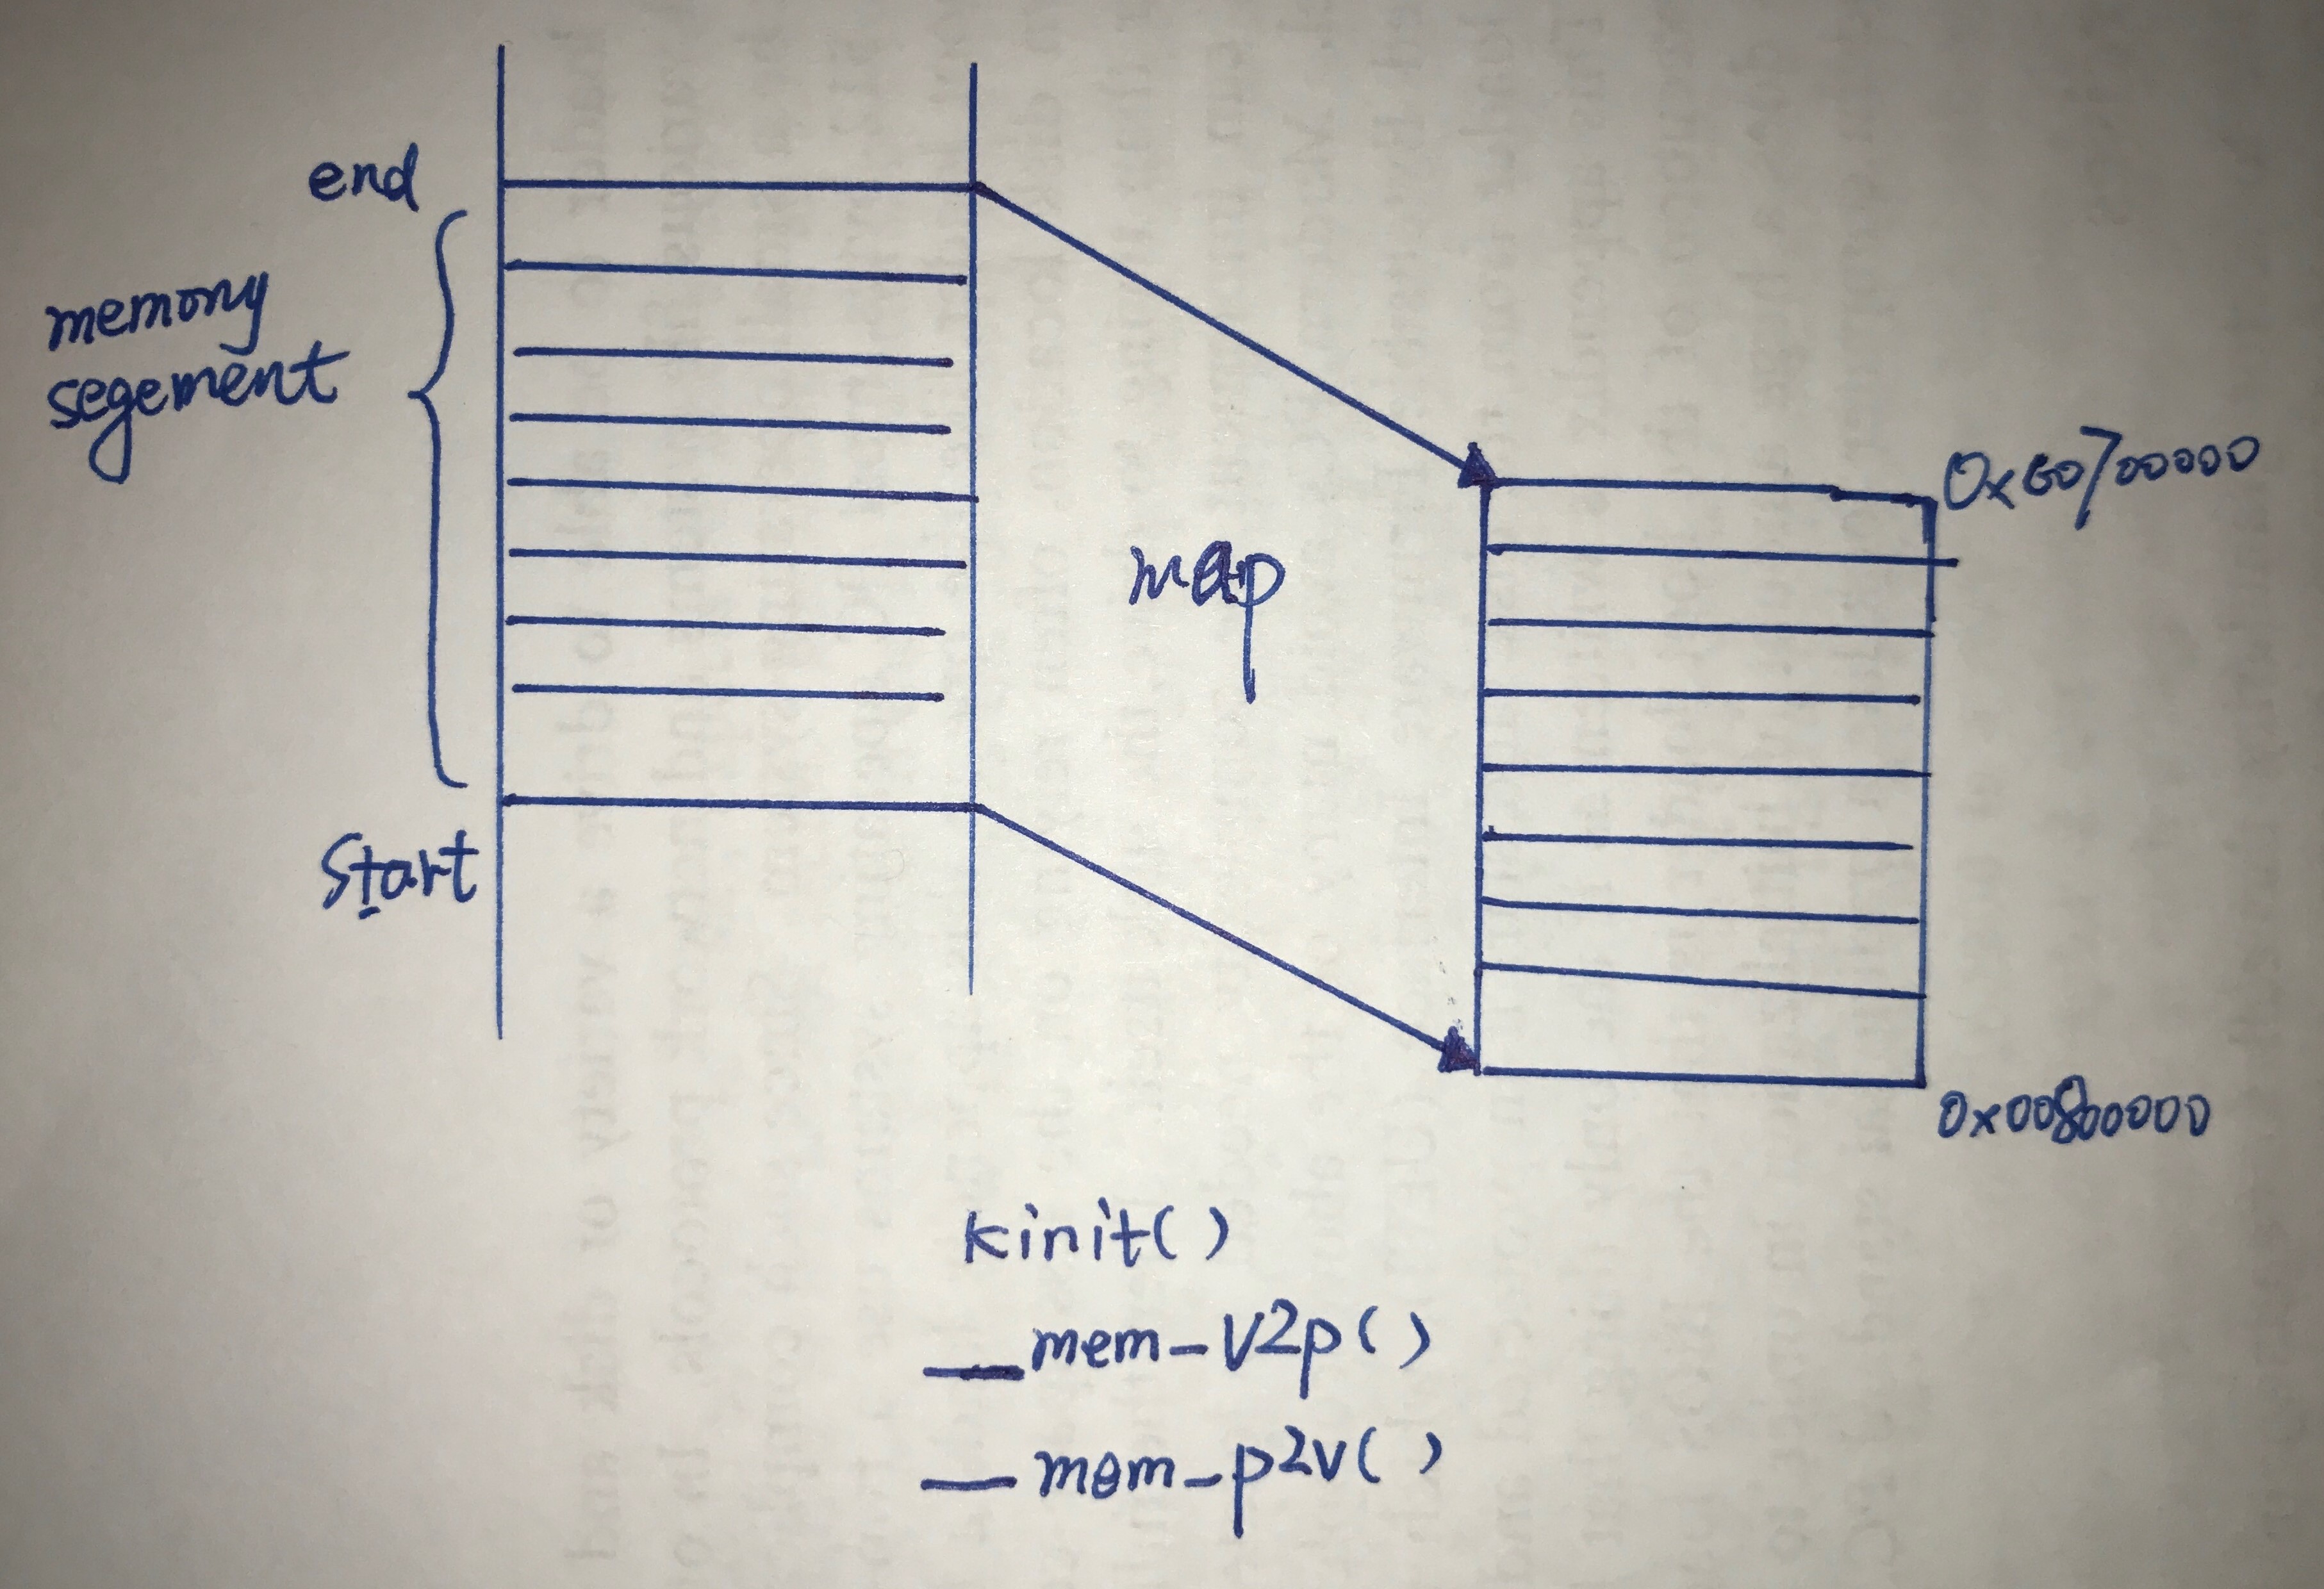 end
memory
segement
map
0x60700000
Start
0x00800000
kinit()
__mem_v2p()
__mem_p2v()